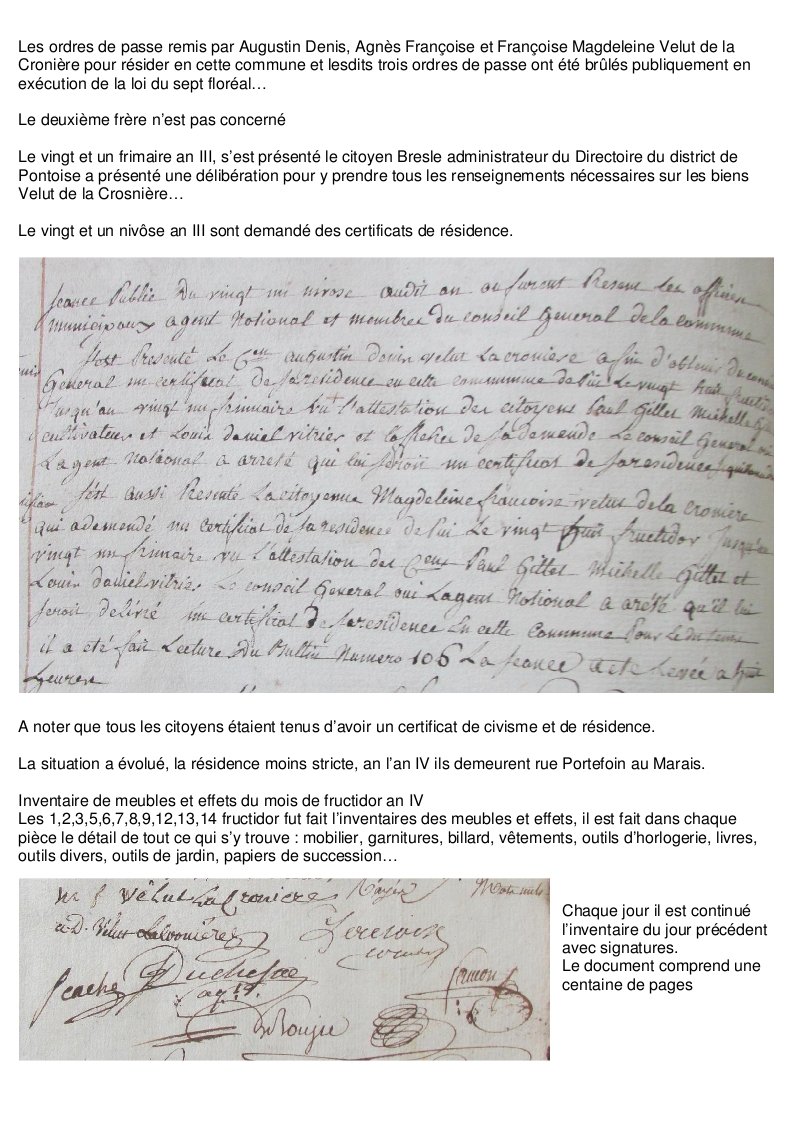 Les ordres de passe remis par Augustin Denis, Agnès Françoise et Françoise Magdeleine Velut de la
Cronière pour résider en cette commune et lesdits trois ordres de passe ont été brûlés publiquement en
exécution de la loi du sept floréal…
Le deuxième frère n’est pas concerné
Le vingt et un frimaire an III, s’est présenté le citoyen Bresle administrateur du Directoire du district de
Pontoise a présenté une délibération pour y prendre tous les renseignements nécessaires sur les biens
Velut de la Crosnière…
Le vingt et un nivôse an III sont demandé des certificats de résidence.
seance Publie Du vingt un nivose audit an ou furent Present les officiers
municipaux agent National et membres du conseil General de la commune
s'est Presenté Le Cen augustin denis velut Lacroniere afin d'obtenir du conseil
General un certificat de sa residence en cette commune depui Le vingt huit fructidor
Jusqu'au vingt un frimaire vu l'attestation des citoyens Paul Gillet michelle
cultivateur et Louis daniel vitrier et de sa demende Le conseil General oui
Lagent National a arresté qui lui seroit un certificat de sa residence
s'est aussi Presenté La citoyenne Magdeleine francoise velus de la croniere
qui a demendé un certificat de sa residence depui Le vingt huit fructidor Jusqu'au
vingt un frimaire vu l'attestation des Cens Paul Gillet michelle Gillet et
Louis daniel vitrier Le conseil General oui Lagent National a arété qu'il lui
seroit delivré un certificat de sa residence En cette Commune Pour le dit tems
il a eté fait Lecture Du Bultin Numero 106 La seance a eté Levée a huit
heures
A noter que tous les citoyens étaient tenus d’avoir un certificat de civisme et de résidence.
La situation a évolué, la résidence moins stricte, an l’an IV ils demeurent rue Portefoin au Marais.
Inventaire de meubles et effets du mois de fructidor an IV
Les 1,2,3,5,6,7,8,9,12,13,14 fructidor fut fait l’inventaires des meubles et effets, il est fait dans chaque
pièce le détail de tout ce qui s’y trouve : mobilier, garnitures, billard, vêtements, outils d’horlogerie, livres,
outils divers, outils de jardin, papiers de succession…
m f vélut La Croniere Rayés Mots nuls
a.D. Velut Lacroniere
Duchesne
Chaque jour il est continué
l’inventaire du jour précédent
avec signatures.
Le document comprend une
centaine de pages